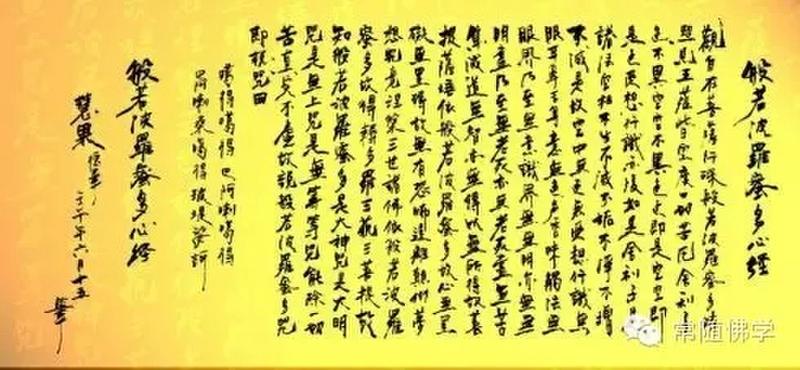 般若波羅蜜多心經
觀自在菩薩行深般若波羅蜜多時
照見五蘊皆空度一切苦厄舍利子
色不異空空不異色色即是空空即
是色受想行識亦復如是舍利子是
諸法空相不生不滅不垢不淨不增
不減是故空中無色無受想行識無
眼耳鼻舌身意無色聲香味觸法無
眼界乃至無意識界無無明亦無無
明盡乃至無老死亦無老死盡無苦
集滅道無智亦無得以無所得故菩
提薩埵依般若波羅蜜多故心無罣
礙無罣礙故無有恐怖遠離顛倒夢
想究竟涅槃三世諸佛依般若波羅
蜜多故得耨多羅三藐三菩提故
知般若波羅蜜多是大神咒是大明
咒是無上咒是無等等咒能除一切
苦真實不虛故說般若波羅蜜多咒
即說咒曰
噶得噶得巴阿喇噶得
阿喇桑噶得玻堤梭訶
般若波羅蜜多心經
慧果
壬午年六月十五
常随佛学